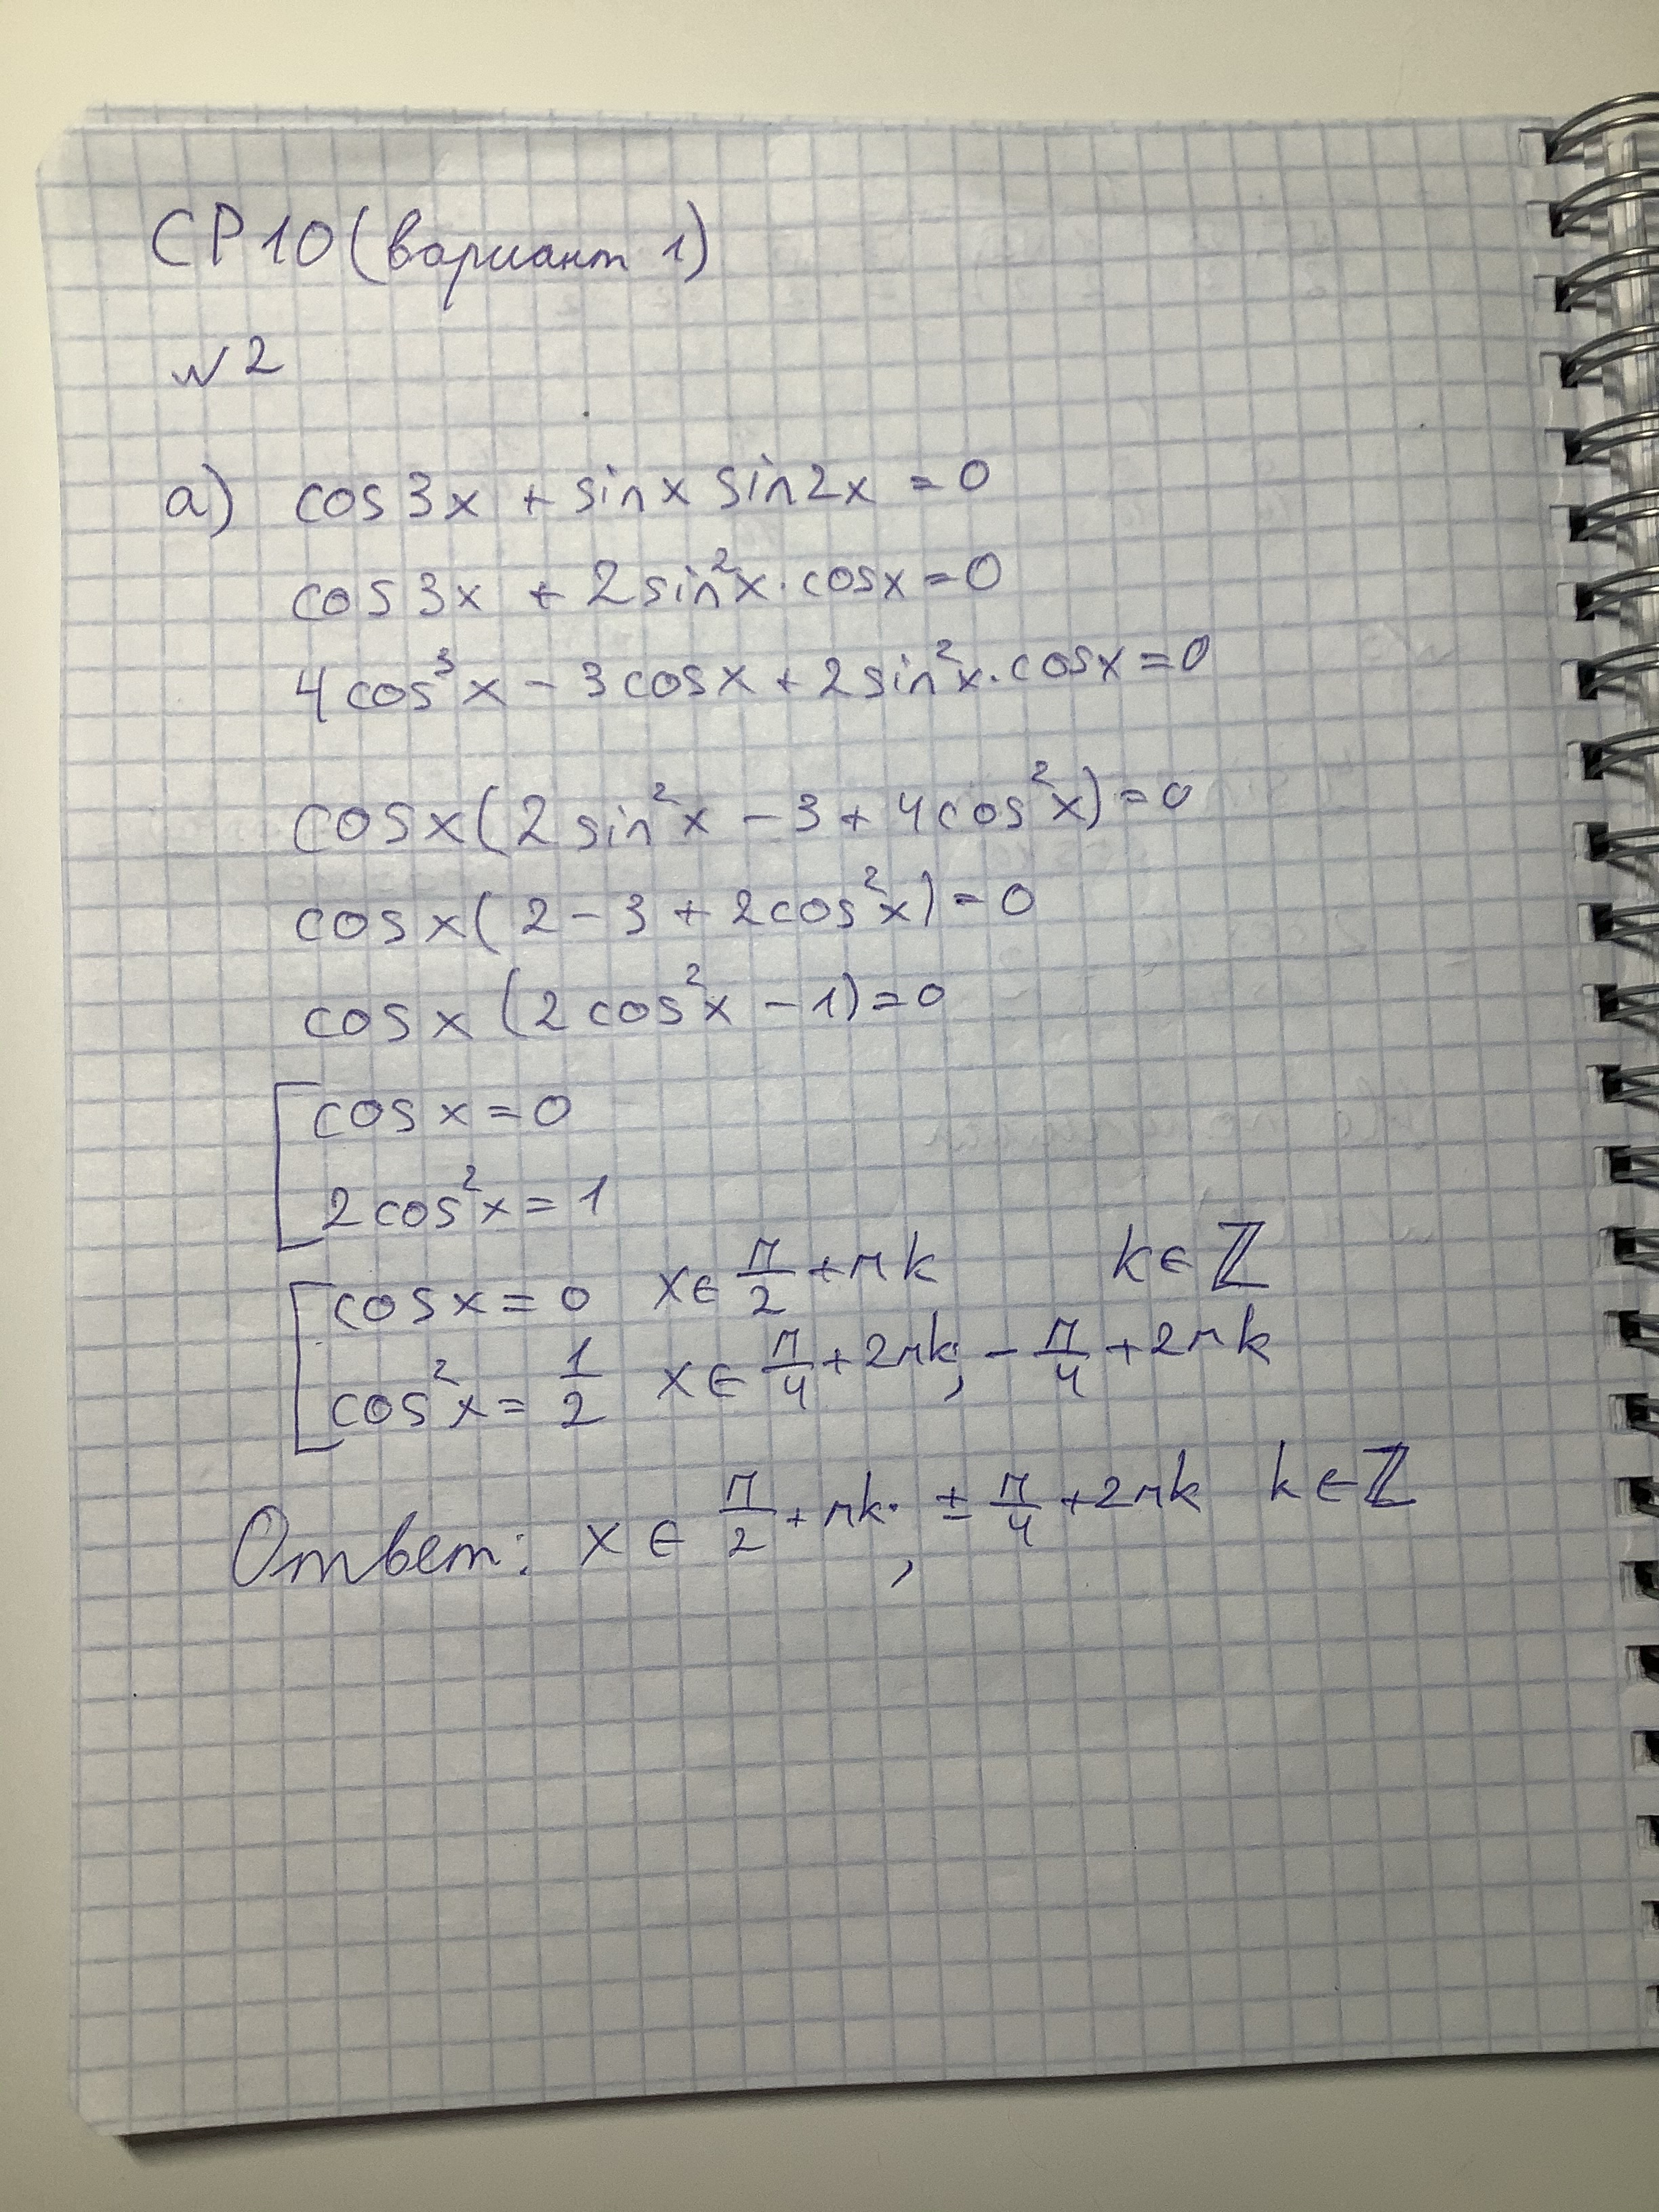 СР10(вариант 1)
№2
а) cos3x + sinx sin2x = 0
cos3x + 2sin²x·cosx = 0
4cos³x - 3cosx + 2sin²x·cosx = 0
cosx(2sin²x - 3 + 4cos²x) = 0
cosx(2 - 3 + 2cos²x) = 0
cosx (2cos²x - 1) = 0
[cosx = 0
2cos²x = 1
[cosx = 0 x∈ π/2 + πk k∈ℤ
cos²x = 1/2 x∈ π/4 + 2πk; - π/4 + 2πk
Ответ: x ∈ π/2 + πk; ± π/4 + 2πk k∈ℤ